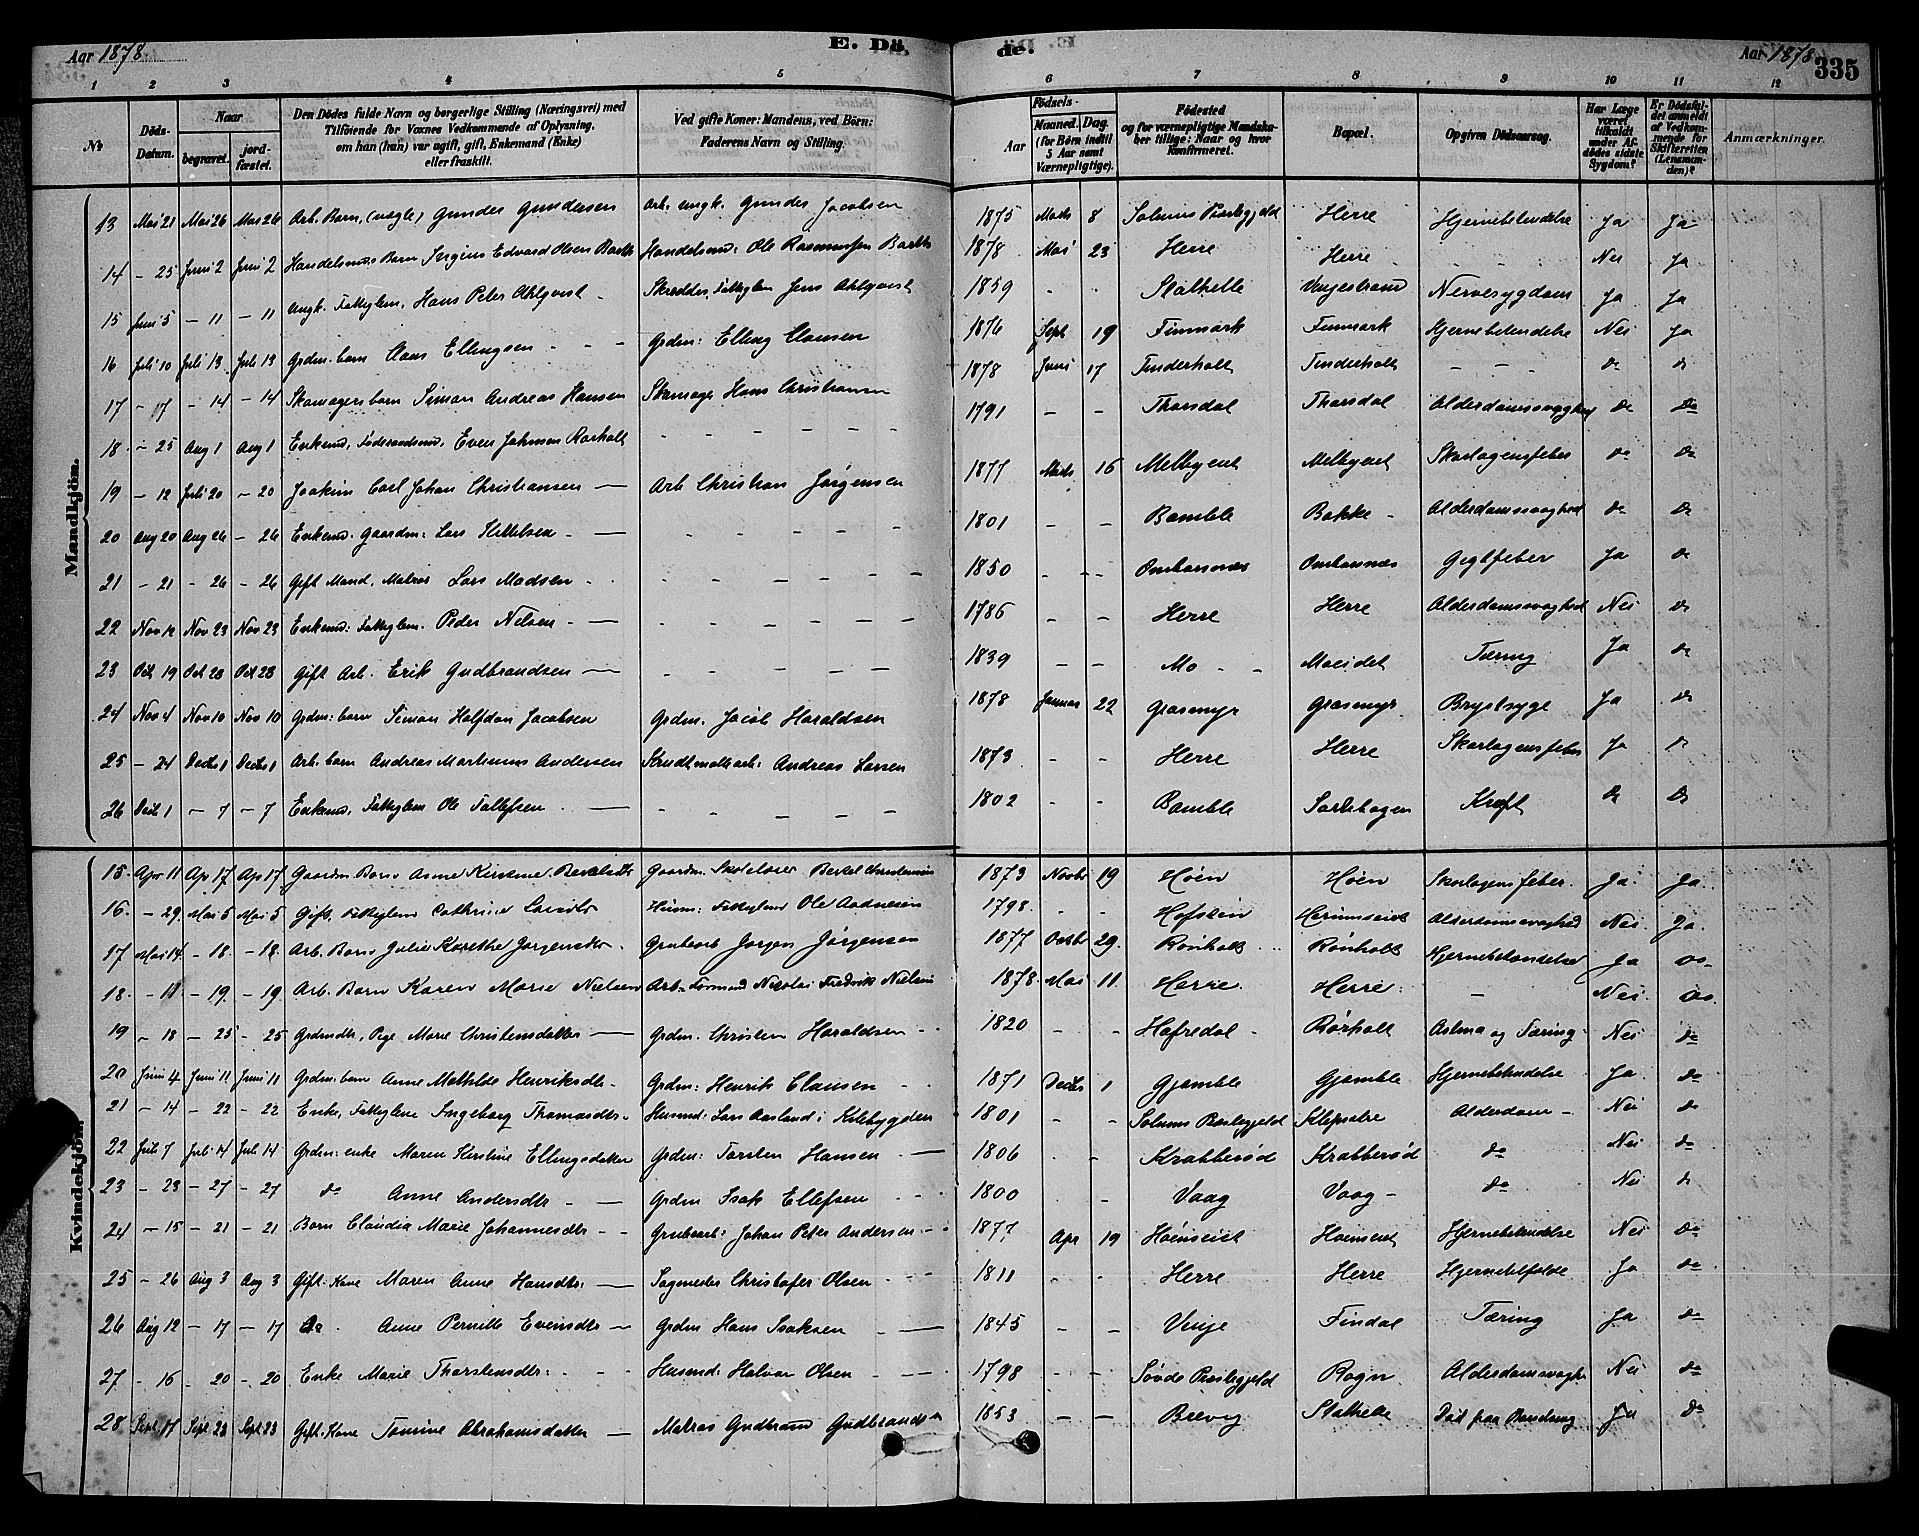 Aar 1878. E. Dö de. Aar 1878. 335
1 2 3 4 5 6 7 8 9 10 11 12
No Döds-Datum. Naar begravet. jordfæstet. Den Dödes fulde Navn og borgerlige Stilling (Næringsvei) med Tilföiende for Voxnes Vedkommende af Oplysning, om han (hun) var ugift, gift, Enkemand (Enke) eller fraskilt. Ved gifte Koner: Mandens, ved Börn: Faderens Navn og Stilling. Födsels- Aar Maaned. Dag. (for Børn indtil 5 Aar samt Værnepligtige). Födested og for værnepligtige Mandskaber tillige: Naar og hvor konfirmeret. Bopæl. Opgiven Dödsaarsag. Har Læge været tilkaldt under Afdødes sidste Sygdom? Er Dödsfaldet anmeldt af Vedkommende for Skifteretten (Lensmanden)? Anmærkninger.
Mandkjön.
13 Mai 21 Mai 26 Mai 26 Arb. Barn, (uægte) Gunder Gundersen Arb. ungk. Gunder Jacobsen 1875 Marts 8 Solums Præstegjeld Herre Hjernebetendelse Ja Ja
14 - 25 Juni 2 Juni 2 Handelsmds Barn Jergius Edvard Olsen Handelsmd: Ole Rasmussen 1878 Mai 23 Herre Herre - - Nei Ja
15 Juni 5 - 11 - 11 Ungk. Fattiglem, Hans Peter Ahlqvist - Skrædder, Fattiglem Jens Ahlqvist 1859 - - Stathelle Vinjestrand Nervesygdom Ja Ja
16 Juli 10 Juli 13 Juli 13 Grdm. barn Claus Ellingsen - - - Grdm: Elling Clausen 1876 Sept 19 Finmark Finmark Hjernebetendelse Nei Ja
17 - 17 - 14 - 14 Skomagersbarn Simon Andreas Hansen Skomager Hans Christiansen 1878 Juni 17 Tinderholt Tinderholt - - do do
18 - 25 Aug 1 Aug 1 Enkemd, Föderaadsmd, Even Johnsen Rørholt - - - - - 1791 - - Thorsdal Thorsdal Alderdomssvaghed do do
19 - 12 Juli 20 - 20 Joakim Carl Johan Christiansen - Arb Christian Jørgensen 1877 Marts 16 Melbyeiet Melbyeiet Skarlagensfeber do do
20 Aug 20 Aug 26 - 26 Enkemd. Gaardm: Lars Kittelsen - - - - - - 1801 - - Bamble Bakke - Alderdomssvaghed do do
21 - 21 - 26 - 26 Gift Mand, Matros Lars Madsen - - - - - - - 1850 - - - Omborsnæs Omborsnæs Gigtfeber Ja do
22 Nov 12 Nov 23 Nov 23 Enkemd: Fattiglem. Peder Nilsen - - - - - - - 1786 - - Herre Herre Alderdomssvaghed Nei do
23 Oct 19 Oct 28 Oct 28 Gift Arb. Erik Gudbrandsen - - - - - - 1839 - - Mo - - Moeidet Tæring Ja do
24 Nov 4 Nov 10 Nov 10 Grdm: barn Simon Halfdan Jacobsen Grdm. Jacob Haraldsen 1878 Januar 22 Grasmyr Grasmyr Brystsyge Ja do
25 - 24 Decbr 1 Decbr 1 Arb. barn Andreas Martinius Andersen Krudtmøllearb: Andreas Larsen 1873 - - Herre Herre Skarlagensfeber Ja do
26 Decbr 1 - 7 - 7 Enkemd, Fattiglem Ole Tollefsen - - - - - - - 1802 - - Bamble Kræft do do
Kvindekjön.
15. Apr 11 Ap 17 Ap 17 Gaardm Barn Anne Kirstine Gaardm. Skolelærer 1873 Novbr 19 Höen Höen Skarlagensfeber. Ja. Ja.
16. - 29. Mai 5 Mai 5 Gift. Fattiglem Cathrine Husm: Fattiglem Ole Andresen 1798. - - Hofstein Alderdomssvaghed Nei. Ja.
17 Mai 14 - 18. - 18. Arb. Barn Julie Karethe Jørgensdtr. Grubearb Jørgen Jørgensen 1877 Octbr 29. Rönholt Rönholt Hjernebetændelse Ja do
18. - 18 - 19. - 19 Arb. Barn Karen Marie Nielsen Arb. Formand Nicolai Fredrik Nielsen 1878. Mai 11. Herre. Herre. - Nei do
19 - 18 - 25 - 25 Grdmdtr, Pige Marie Christensdatter - Grdm. Christen Haraldsen - - 1820 - - Hafredal - Rørholt Astma og Tæring. Nei do
20 Juni 4 Juni 11 Juni 11 Grdm: barn Anne Mathilde Henriksdtr. Grdm: Henrik Clausen - - 1871 Decbr 1 Gjømble Gjømble Hjernebetendelse Ja do
21 - 14 - 22 - 22 Enke, Fattiglem Ingeborg Thomasdtr. Husmd: Lars Aasland i Kilebygden 1801 - - Solums Præstegjeld Klepsalre Alderdom - Nei do
22 Juli 7 Juli 14 Juli 14 Grdm: enke Maren Kirstine Ellingsdatter Grdm: Torsten Hansen - - 1806 - - Krabberød Krabberød do Nei do
23 - 23 - 27 - 27 do Anne Andersdtr - - Grdm Isak Ellefsen - - - 1800 - Vaag Vaag - do Nei do
24 - 15 - 21 - 21 Barn Claudia Marie Johannesdtr - - Grubearb: Johan Peter Andersen - 1877 Apr 19 Höenseiet Hoenseiet Hjernebetendelse Nei do
25 - 26 Aug 3 Aug 3 Gift Kone Maren Anne Hansdtr: - Sagmester Christofer Olsen - - - 1811 - - Herre Herre Hjernetilfelde Ja do
26 Aug 12 - 17 - 17 do - Anne Pernille Evensdtr - Grdm Hans Isaksen - - 1845 - - Vinje Findal Tæring Ja do
27 - 16 - 20 - 20 Enke Marie Thorstensdtr: - - - Husmd: Halvor Olsen - - - 1798 - - - Søvde Præstegjeld Rogn Alderdomssvaghed Nei do
28 Sept. 17 Sept. 23 Sept 23 Gift Kone Tomine Abrahamsdatter - Matros Gudbrand Gudbrandsen 1853 - - Brevig Stathelle Død paa Barselseng Ja do